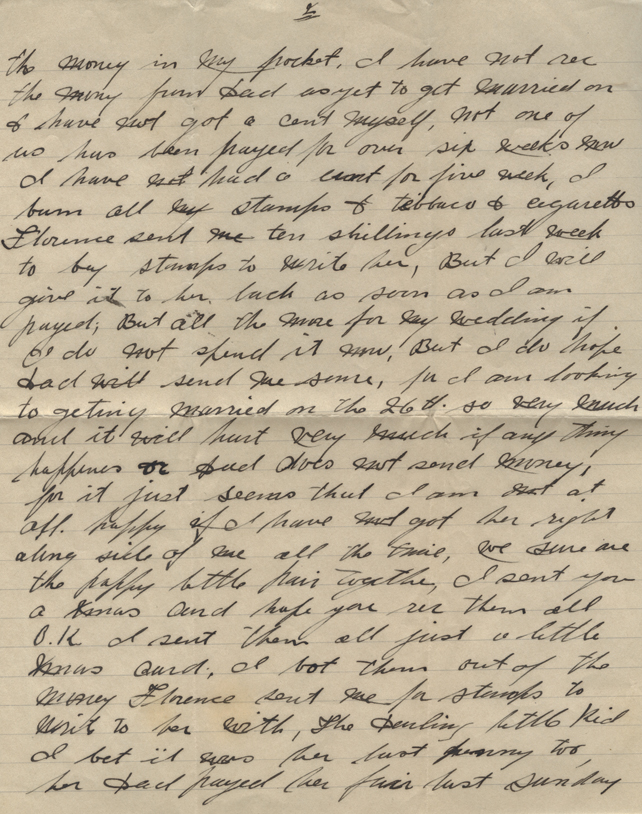 2
the money in my pocket, I have not rec
the mony from Dad as yet to get married on
& have not got a cent myself, not one of
us has been payed for over six weeks now
I have not had a cent for five week, I
bum all my stamps & tobbaco & cigaretts
Florence sent me ten shillings last week
to buy stamps to write her, But I will
give it to her back as soon as I am
payed; But all the more for my wedding if
I do not spend it now, But I do hope
Dad will send me some, for I am looking
to getting married on the 26th. so very much
and it will hurt very much if any thing
happenes or Dad does not send money,
for it just seems that I am not at
all happy if I have not got her right
along side of me all the time, we sure are
the happy little pair together, I sent you
a Xmas card hope you rec them all
O.K I sent them all just a little
Xmas card, I bot them out of the
money Florence sent me for stamps to
write to her with, The Darling little Kid
I bet it was her last penny too,
her Dad payed her fair last Sunday